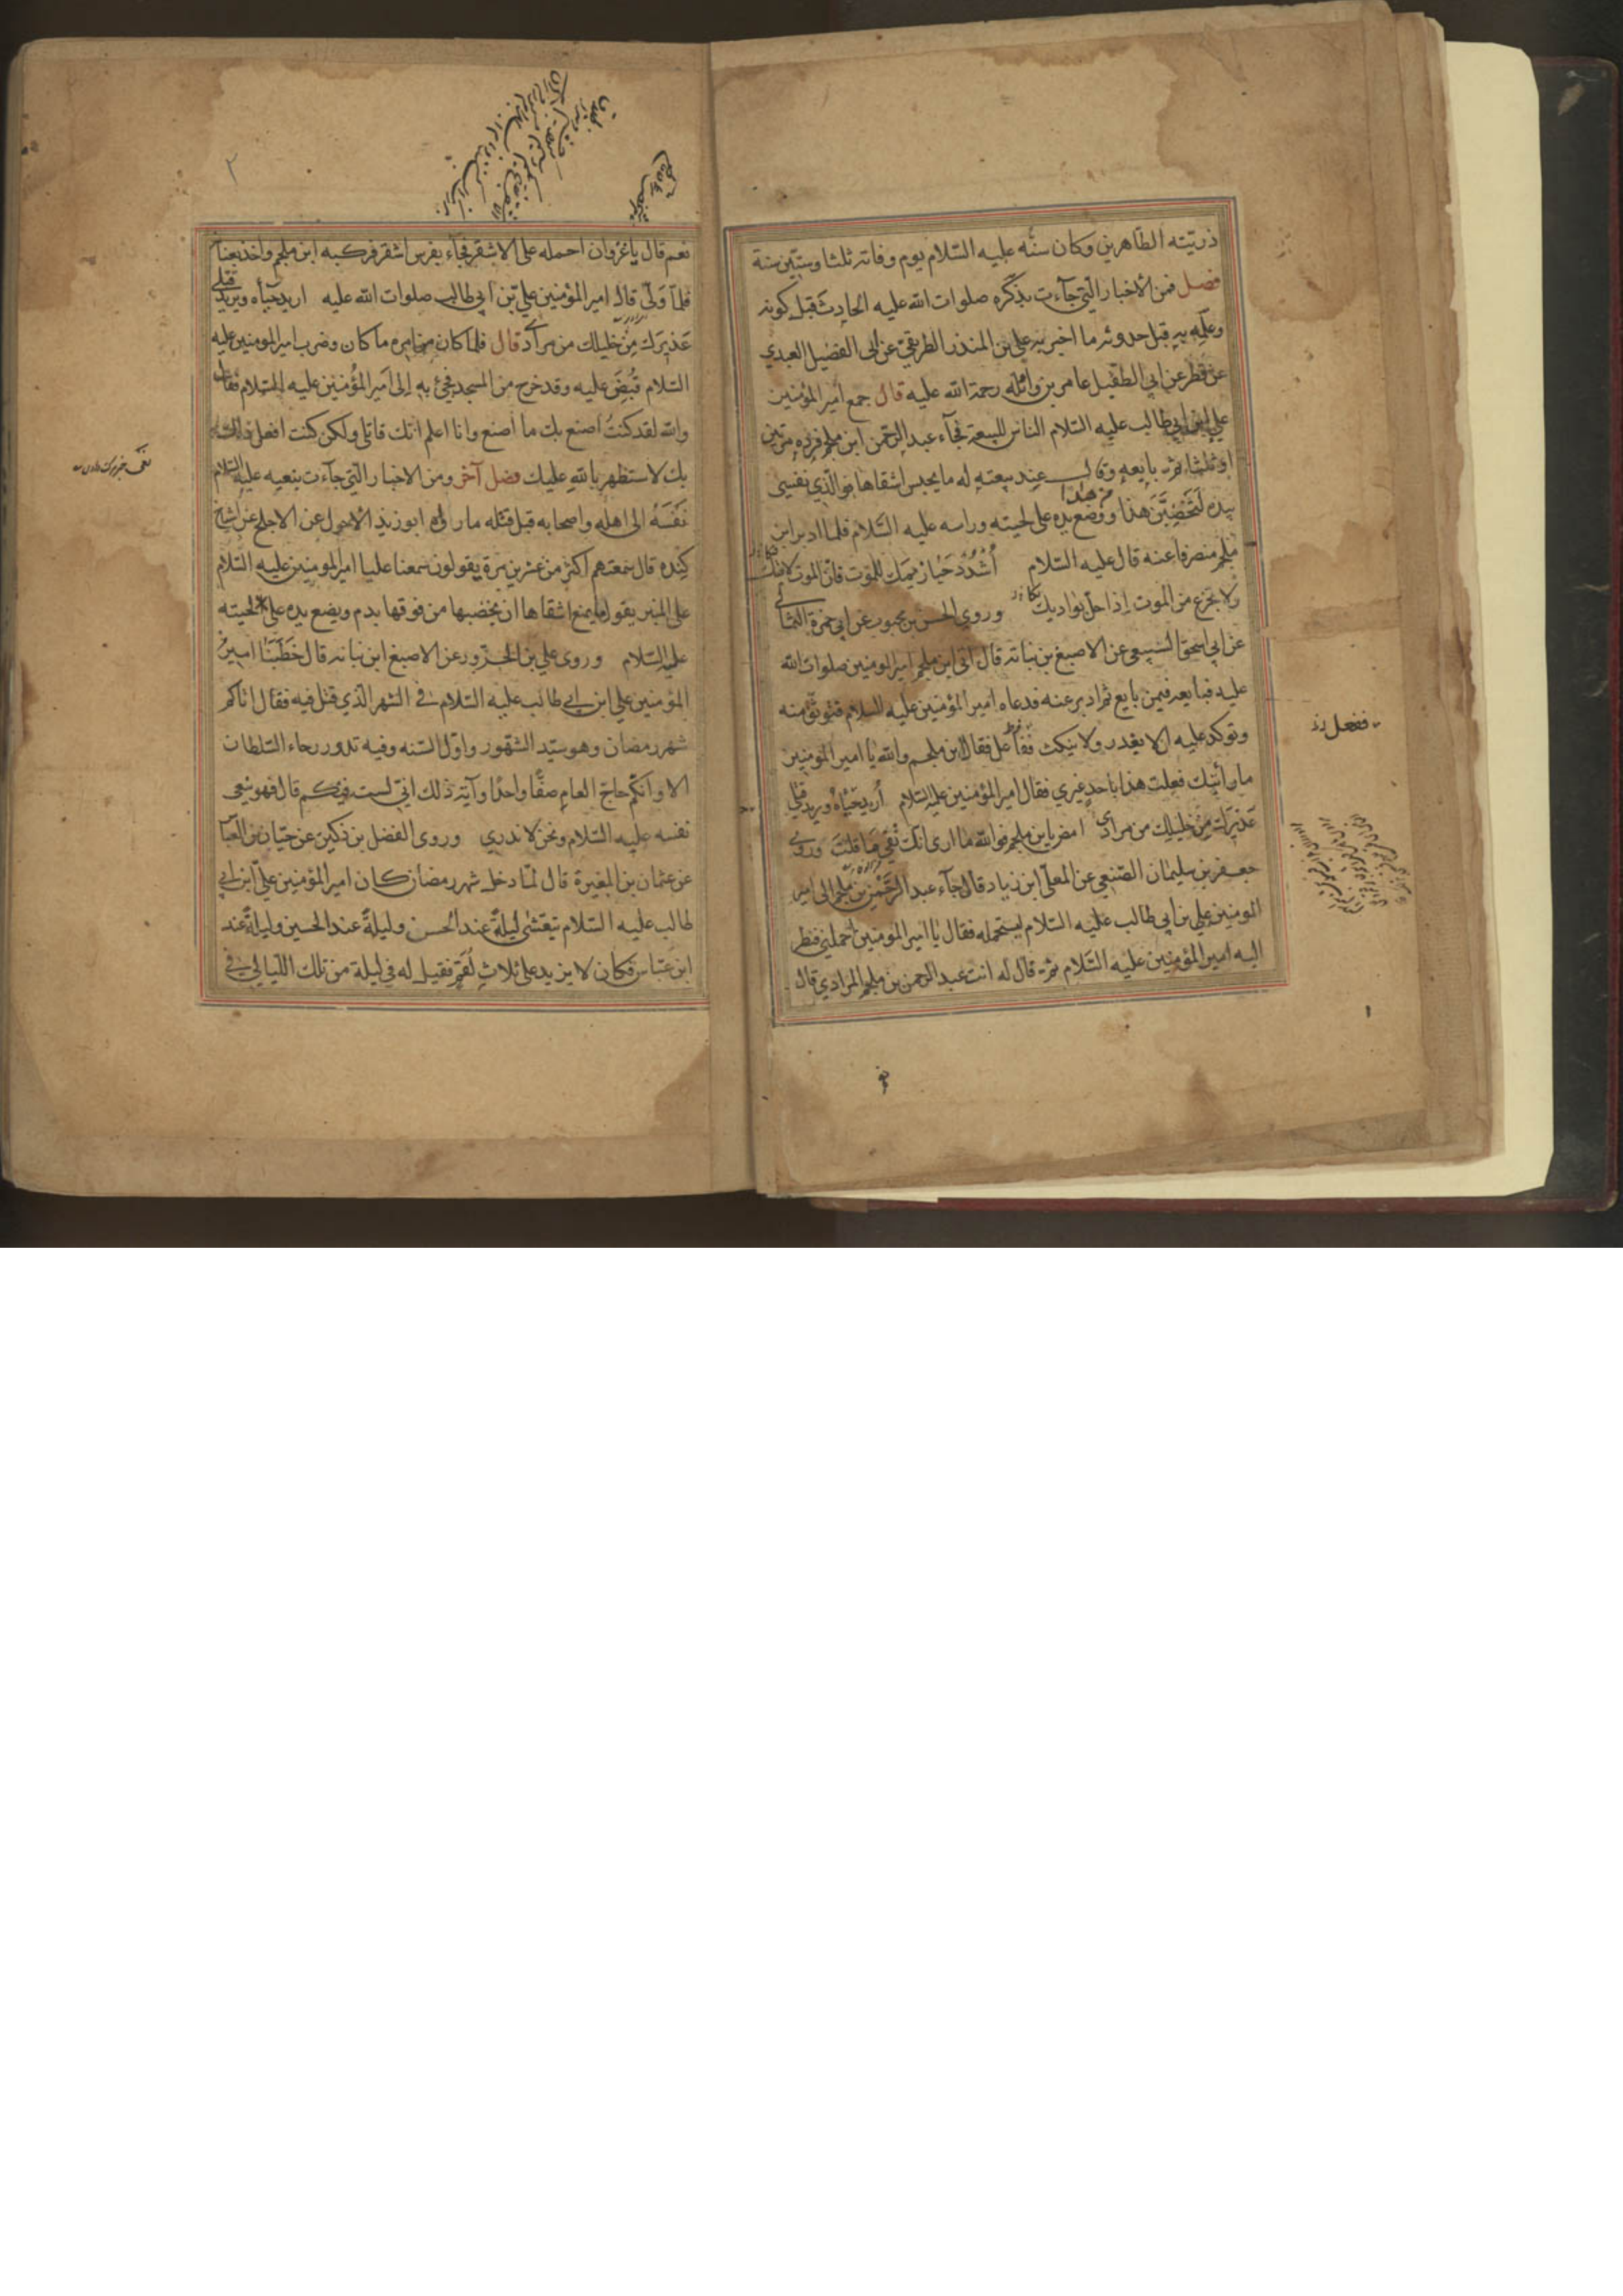 ذريّته الطّاهرين وكان سنّه عليه السّلام يوم وفاته ثلثا وستّين سنة
فصل فمن الأخبار الّتي جآءت بذكره صلوات الله عليه الحادث قبل كونه
وعلمه به قبل حدوثه ما اخبر به علي بن المنذر الطريقي عن ابي الفضيل العبدي
عن فطر عن ابي الطفيل عامر بن واثله رحمة الله عليه قال جمع امير المؤمنين
علي ابن ابي طالب عليه السّلام الناس للبيعة فجآء عبد الرحمن ابن ملجم فرده مرتين
او ثلثا ثم بايعه وقال عند بيعته له ما يحبس اشقاها فوالّذي نفسي
بيده لتخضبنّ هذا من هذا ووضع يده على لحيته وراسه عليه السّلام فلما ادبر ابن
ملجم منصرفا عنه قال عليه السّلام اُشْدُدْ حيازيمك للموت فانّ الموت لاقيك
ولا تجزع من الموت إذا حلّ بواديك وروي الحسن بن محبوب عن ابي حمزة الثمالي
عن ابي اسحق السبيعي عن الاصبغ بن نباته قال اتى ابن ملجم امير المومنين صلوات الله
عليه فبايعه فيمن بايع ثم ادبر عنه فدعاه امير المؤمنين عليه السلام فتوثّق منه
وتوكد عليه الا يغدر ولا ينكث ففعل فقال ابن ملجم والله يا امير المومنين
ما رأيتك فعلت هذا باحد غيري فقال امير المؤمنين عليه السّلام أريد حباه ويريد قتلي
عذيرك من خليلك من مراد امض يا بن ملجم فوالله ما ارى انك تفي بما قلت وروى
جعفر بن سليمان الضبعي عن المعلّى ابن زياد قال جآء عبد الرحمن بن ملجم الى امير
المومنين علي بن أبي طالب عليه السّلام ليستحمله فقال يا امير المومنين احملني فنظر
اليه امير المؤمنين عليه السّلام ثم قال له انت عبد الرحمن بن ملجم المرادي قال
ففعل
نعم قال يا غزوان احمله على الاشقر فجآء بفرس اشقر فركبه ابن ملجم واخذ بعنانه
فلمّا ولّى قال امير المؤمنين علي بن ابي طالب صلوات الله عليه اريد حباه ويريد قتلي
عذيرك من خليلك من مراد قال فلما كان من امره ما كان وضرب امير المومنين عليه
السّلام قبض عليه وقد خرج من المسجد فجئ به إلى امير المؤمنين عليه السّلام فقال
والله لقد كنت اصنع بك ما أصنع وانا اعلم انك قاتلي ولكن كنت افعل ذلك
بك لاستظهر بالله عليك فصل آخر ومن الاخبار الّتي جآءت بنعيه عليه السّلام
نفسه الى اهله واصحابه قبل قتله ما رواه ابو زيد الاحول عن الاجلح عن اشياخ
كنده قال سمعتهم اكثر من عشرين مرة يقولون سمعنا عليا امير المومنين عليه السّلام
على المنبر يقول ما يمنع اشقاها ان يخضبها من فوقها بدم ويضع يده على لحيته
عليه السّلام وروى علي بن الحزور عن الاصبغ ابن نباته قال خطبنا امير
المؤمنين علي ابن ابي طالب عليه السّلام في الشهر الّذي قتل فيه فقال اتاكم
شهر رمضان وهو سيّد الشهور واوّل السّنه وفيه تدور رحاء السّلطان
الا وانكم حاج العام صفّا واحدًا وآية ذلك اني لست فيكم قال فهو ينعى
نفسه عليه السّلام ونحن لا ندري وروى الفضل بن دكين عن حيّان بن العبّا
عن عثمان بن المغيرة قال لمّا دخل شهر رمضان كان امير المؤمنين عليّ ابن ابي
طالب عليه السّلام يتعشّى ليلةً عند الحسن وليلةً عند الحسين وليلةً عند
ابن عبّاس فكان لا يزيد على ثلاث لقم فقيل له في ليلة من تلك اللّيالي في